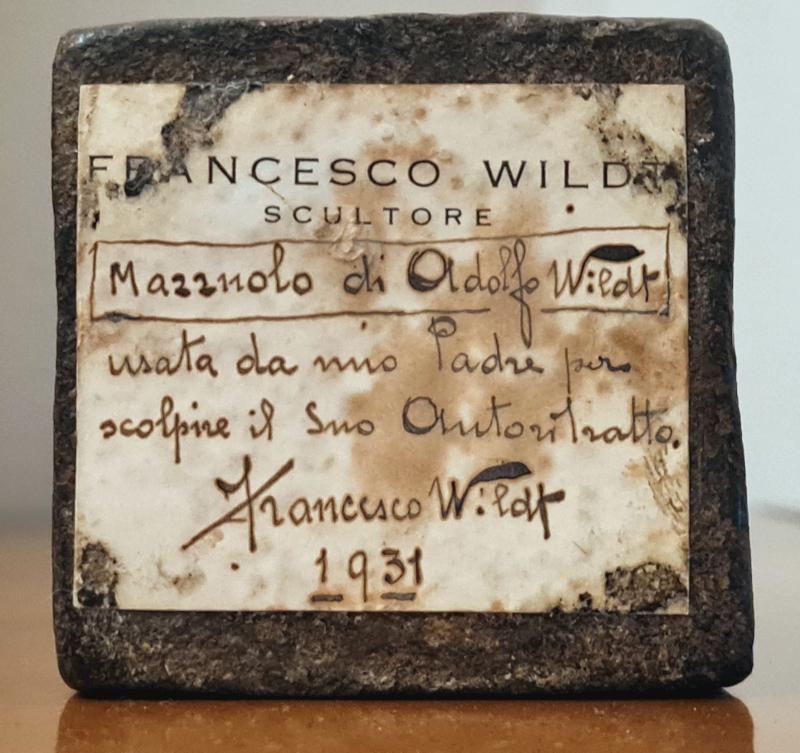 FRANCESCO WILDT
SCULTORE
Mazzuolo di Adolfo Wildt
usata da mio Padre per
scolpire il Suo Autoritratto.
Francesco Wildt
1931